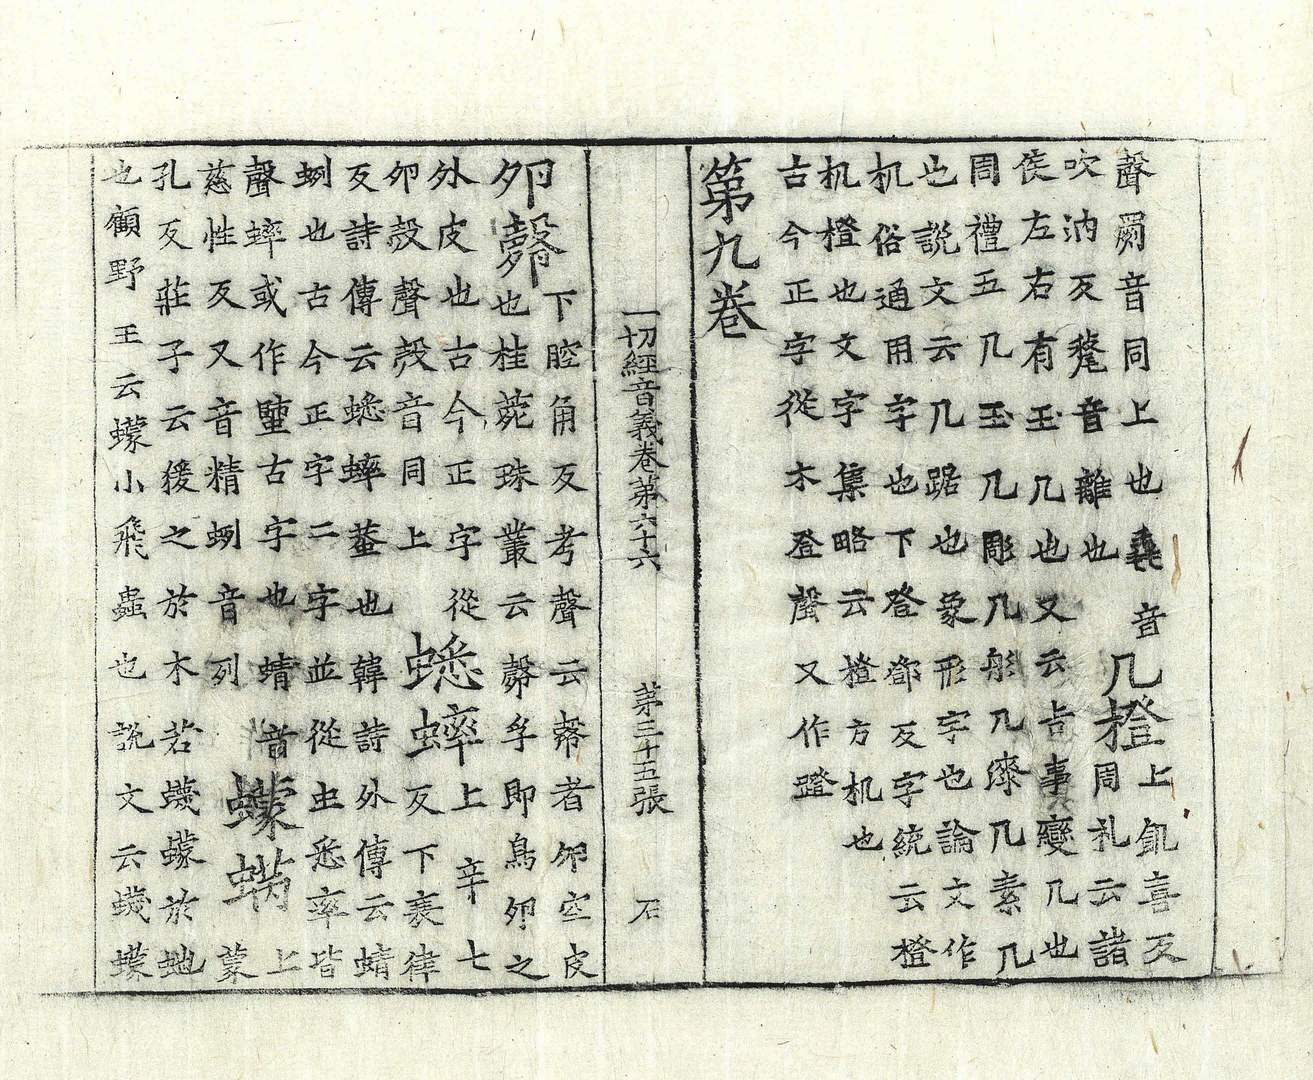 聲罽音同上也毳音
吹汭反氂音離也
几橙
上飢喜反
周礼云諸
侯左右有玉几也又云吉事變几也
周禮五几玉几彫几彤几漆几素几
也說文云几踞也象形字也論文作
机俗通用字也下登鄧反字統云橙
机橙也文字集略云橙方机也
古今正字從木登聲又作蹬
第九卷
一切經音義卷第六十六 第三十五張 石
卵㲉
下腔角反考聲云㲉者卵空皮
也桂菀珠叢云㲉孚即鳥卵之
外皮也古今正字從
卵殸聲殸音同上
蟋蟀
上辛七
反下衰律
反詩傳云蟋蟀蛬也韓詩外傳云蜻
蛚也古今正字二字並從虫悉率皆
聲蟀或作𧍓古字也蜻音
慈性反又音精蛚音列
蠓蚋
上
蒙
孔反莊子云猨之於木若蠛蠓於地
也顧野王云蠓小飛蟲也說文云蠛蠓